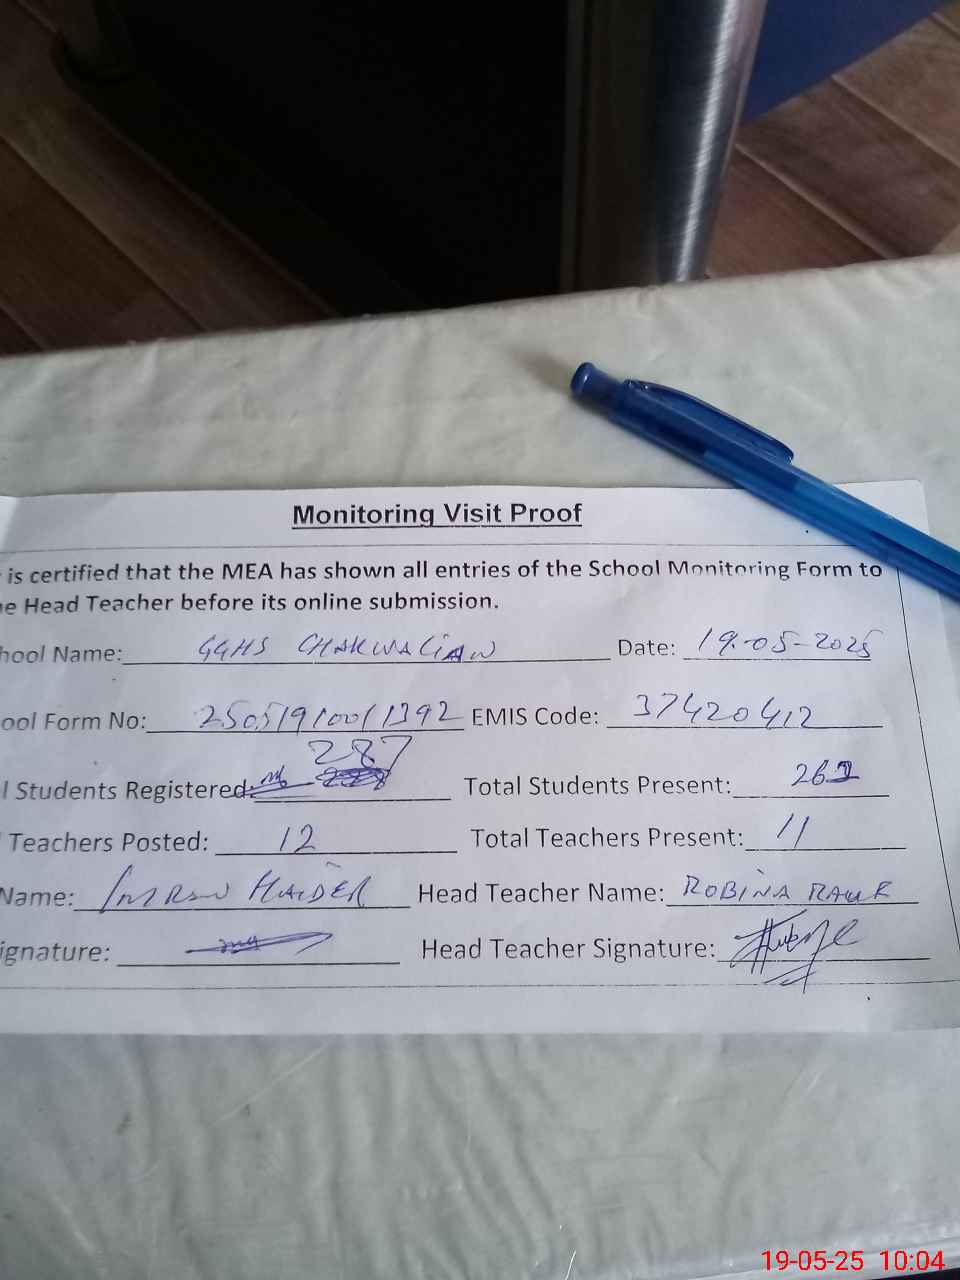 Monitoring Visit Proof
is certified that the MEA has shown all entries of the School Monitoring Form to
e Head Teacher before its online submission.
hool Name: GGHS CHAKWALiAN Date: 19-05-2025
ool Form No: 25051910011392 EMIS Code: 37420412
287
l Students Registered: Total Students Present: 262
Teachers Posted: 12 Total Teachers Present: 11
Name: IMRAN HAIDER Head Teacher Name: ROBINA RAUF
ignature: Head Teacher Signature:
19-05-25 10:04